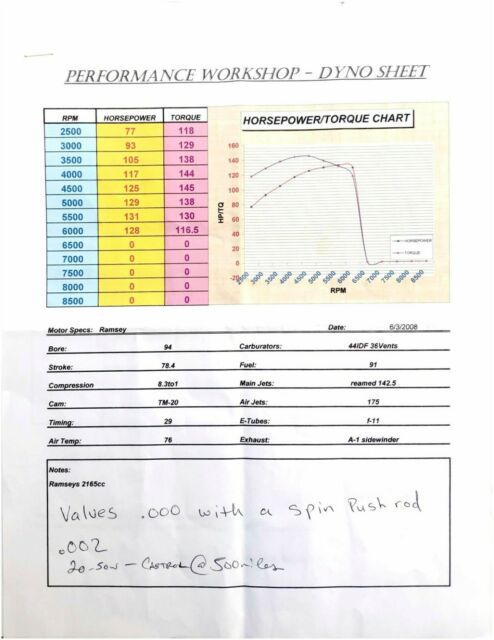 PERFORMANCE WORKSHOP - DYNO SHEET
RPM HORSEPOWER TORQUE
2500 77 118
3000 93 129
3500 105 138
4000 117 144
4500 125 145
5000 129 138
5500 131 130
6000 128 116.5
6500 0 0
7000 0 0
7500 0 0
8000 0 0
8500 0 0
HORSEPOWER/TORQUE CHART
160
140
120
100
80
60
40
20
0
-20
HP/TQ
2500 3000 3500 4000 4500 5000 5500 6000 6500 7000 7500 8000 8500
RPM
HORSEPOWER
TORQUE
Motor Specs: Ramsey Date: 6/3/2008
Bore: 94 Carburators: 44IDF 36Vents
Stroke: 78.4 Fuel: 91
Compression 8.3to1 Main Jets: reamed 142.5
Cam: TM-20 Air Jets: 175
Timing: 29 E-Tubes: f-11
Air Temp: 76 Exhaust: A-1 sidewinder
Notes:
Ramseys 2165cc
Valves .000 with a spin Push rod
.002
20-50W - Castrol @ 500 miles